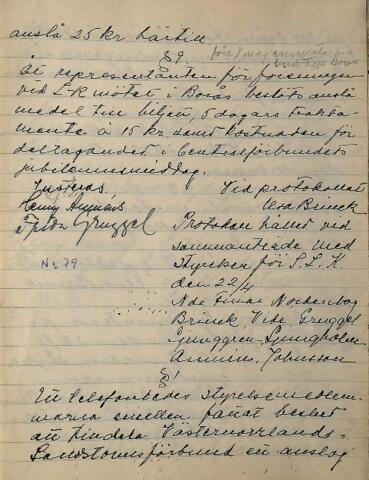 anslå 25 kr härtill.
§ 9
Åt representanten för föreningen
vid L-K mötet i Borås beslöts anslå
medel till biljen, 5 dagars trakta-
mente à 15 kr samt kostnaden för
deltagandet i Centralförbundets
jubileumsmiddag.
Justeras,
Vid protokollet
Elsa Brinck
Frida Gruggel
No 79
Protokoll hållet vid
sammanträde med
Styrelsen för S.L.K
den 22/4
Nde Nordenbog
Brinck, Gruggel
Ljunggren, Ljungholm
Johnsson
§ 1
Ett telefonledes Styrelsemedlem-
marna emellan fattat beslut
att tilldela Västernorrlands
Landstormsförbund en anslag